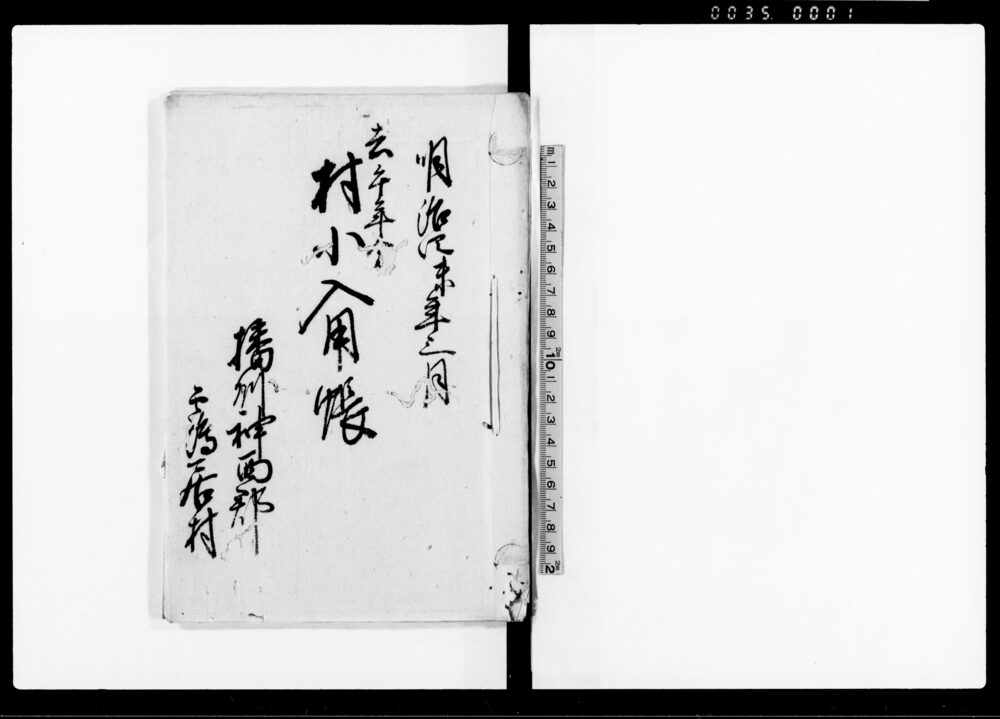 0035. 0001
明治四未年三月
去午年分
村小入用帳
播州神西郡
鶴居村
m 1 2 3 4 5 6 7 8 9 10 1 2 3 4 5 6 7 8 9 2